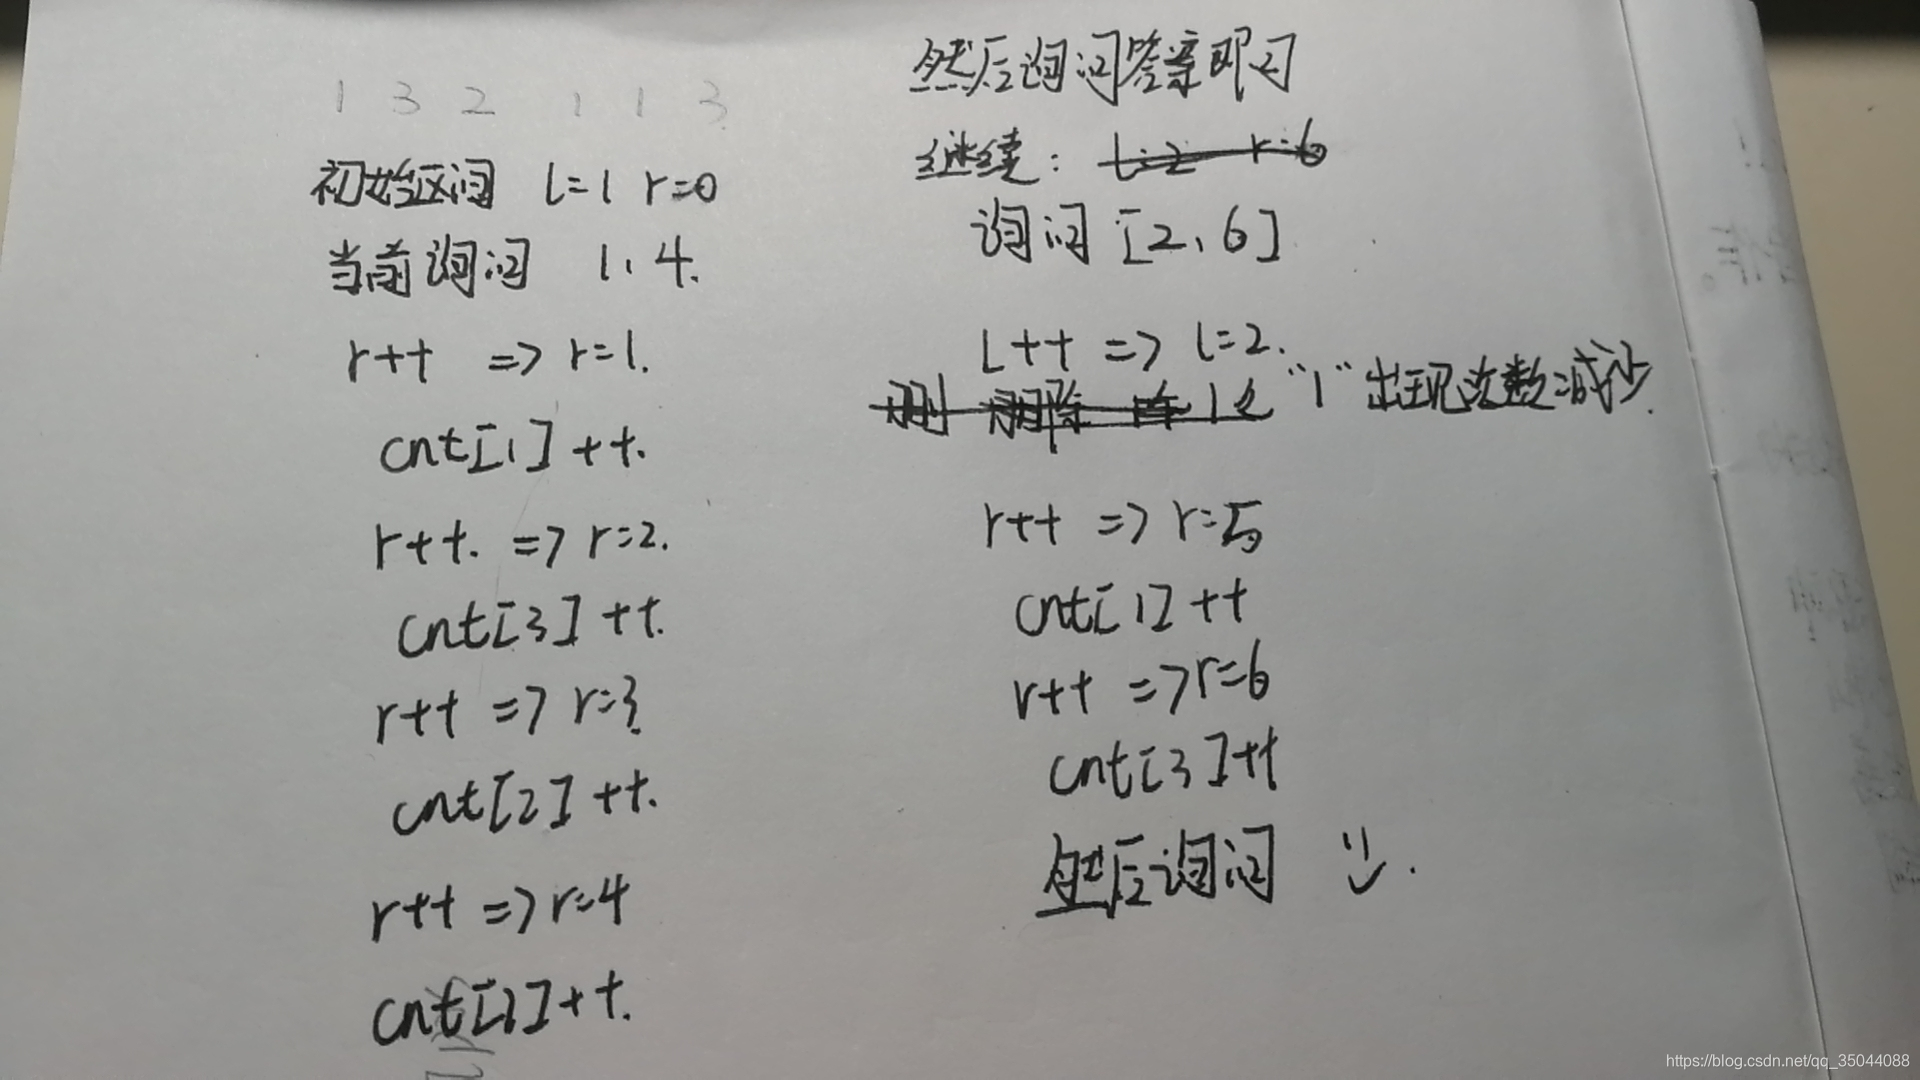 1 3 2 1 1 3
初始区间 l=1 r=0
当前询问 1, 4.
r++ => r=1.
cnt[1]++.
r++. => r=2.
cnt[3]++.
r++ => r=3.
cnt[2]++.
r++ => r=4
cnt[1]++.
然后询问答案即可
继续: l=2 r=6
询问[2,6]
L++ => l=2.
"1"出现次数减少.
r++ => r=5
cnt[1]++
r++ => r=6
cnt[3]++
然后询问
https://blog.csdn.net/qq_35044088